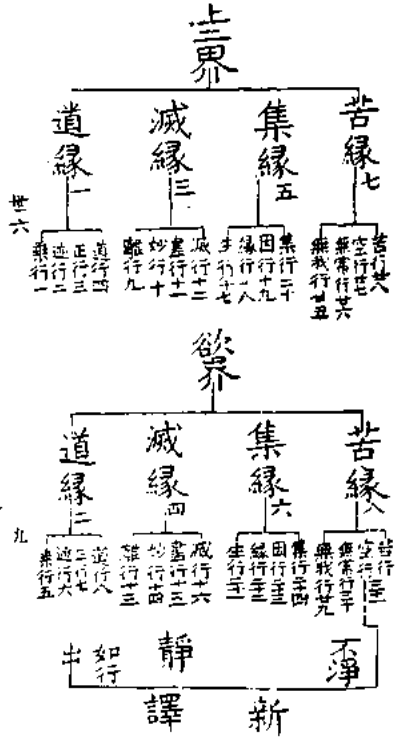 上二界
苦縁七
苦行廿八
空行廿七
無常行廿六
無我行廿五
集縁五
集行二十
因行十九
縁行十八
生行十七
滅縁三
滅行十二
盡行十一
妙行十
離行九
道縁一
道行四
正行三
迹行二
乗行一
丗六
欲界
苦縁八
苦行三二
空行三一
無常行三十
無我行廿九
集縁六
集行二四
因行二三
縁行二二
生行二一
滅縁四
滅行十六
妙行十四
離行十三
道縁二
道行八
正行七
迹行六
乗行五
九
不淨
靜
如行
出
新譯